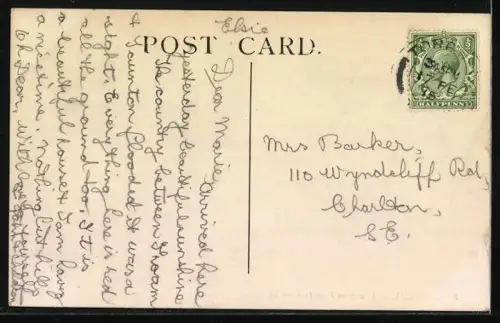 Elsie
POST CARD.
Dear Marie arrived here
yesterday beautiful sunshine
The country between Froam
& Taunton flooded it was a
sight. Everything here is red
all the ground too. It is
a beautiful house & I am having
a nice time. Nothing but hills
Oh Dear, With love yourself
Mrs Barker,
110 Wyndcliff Rd,
Charlton,
S.E.
TOR
7 FE
15
HALFPENNY